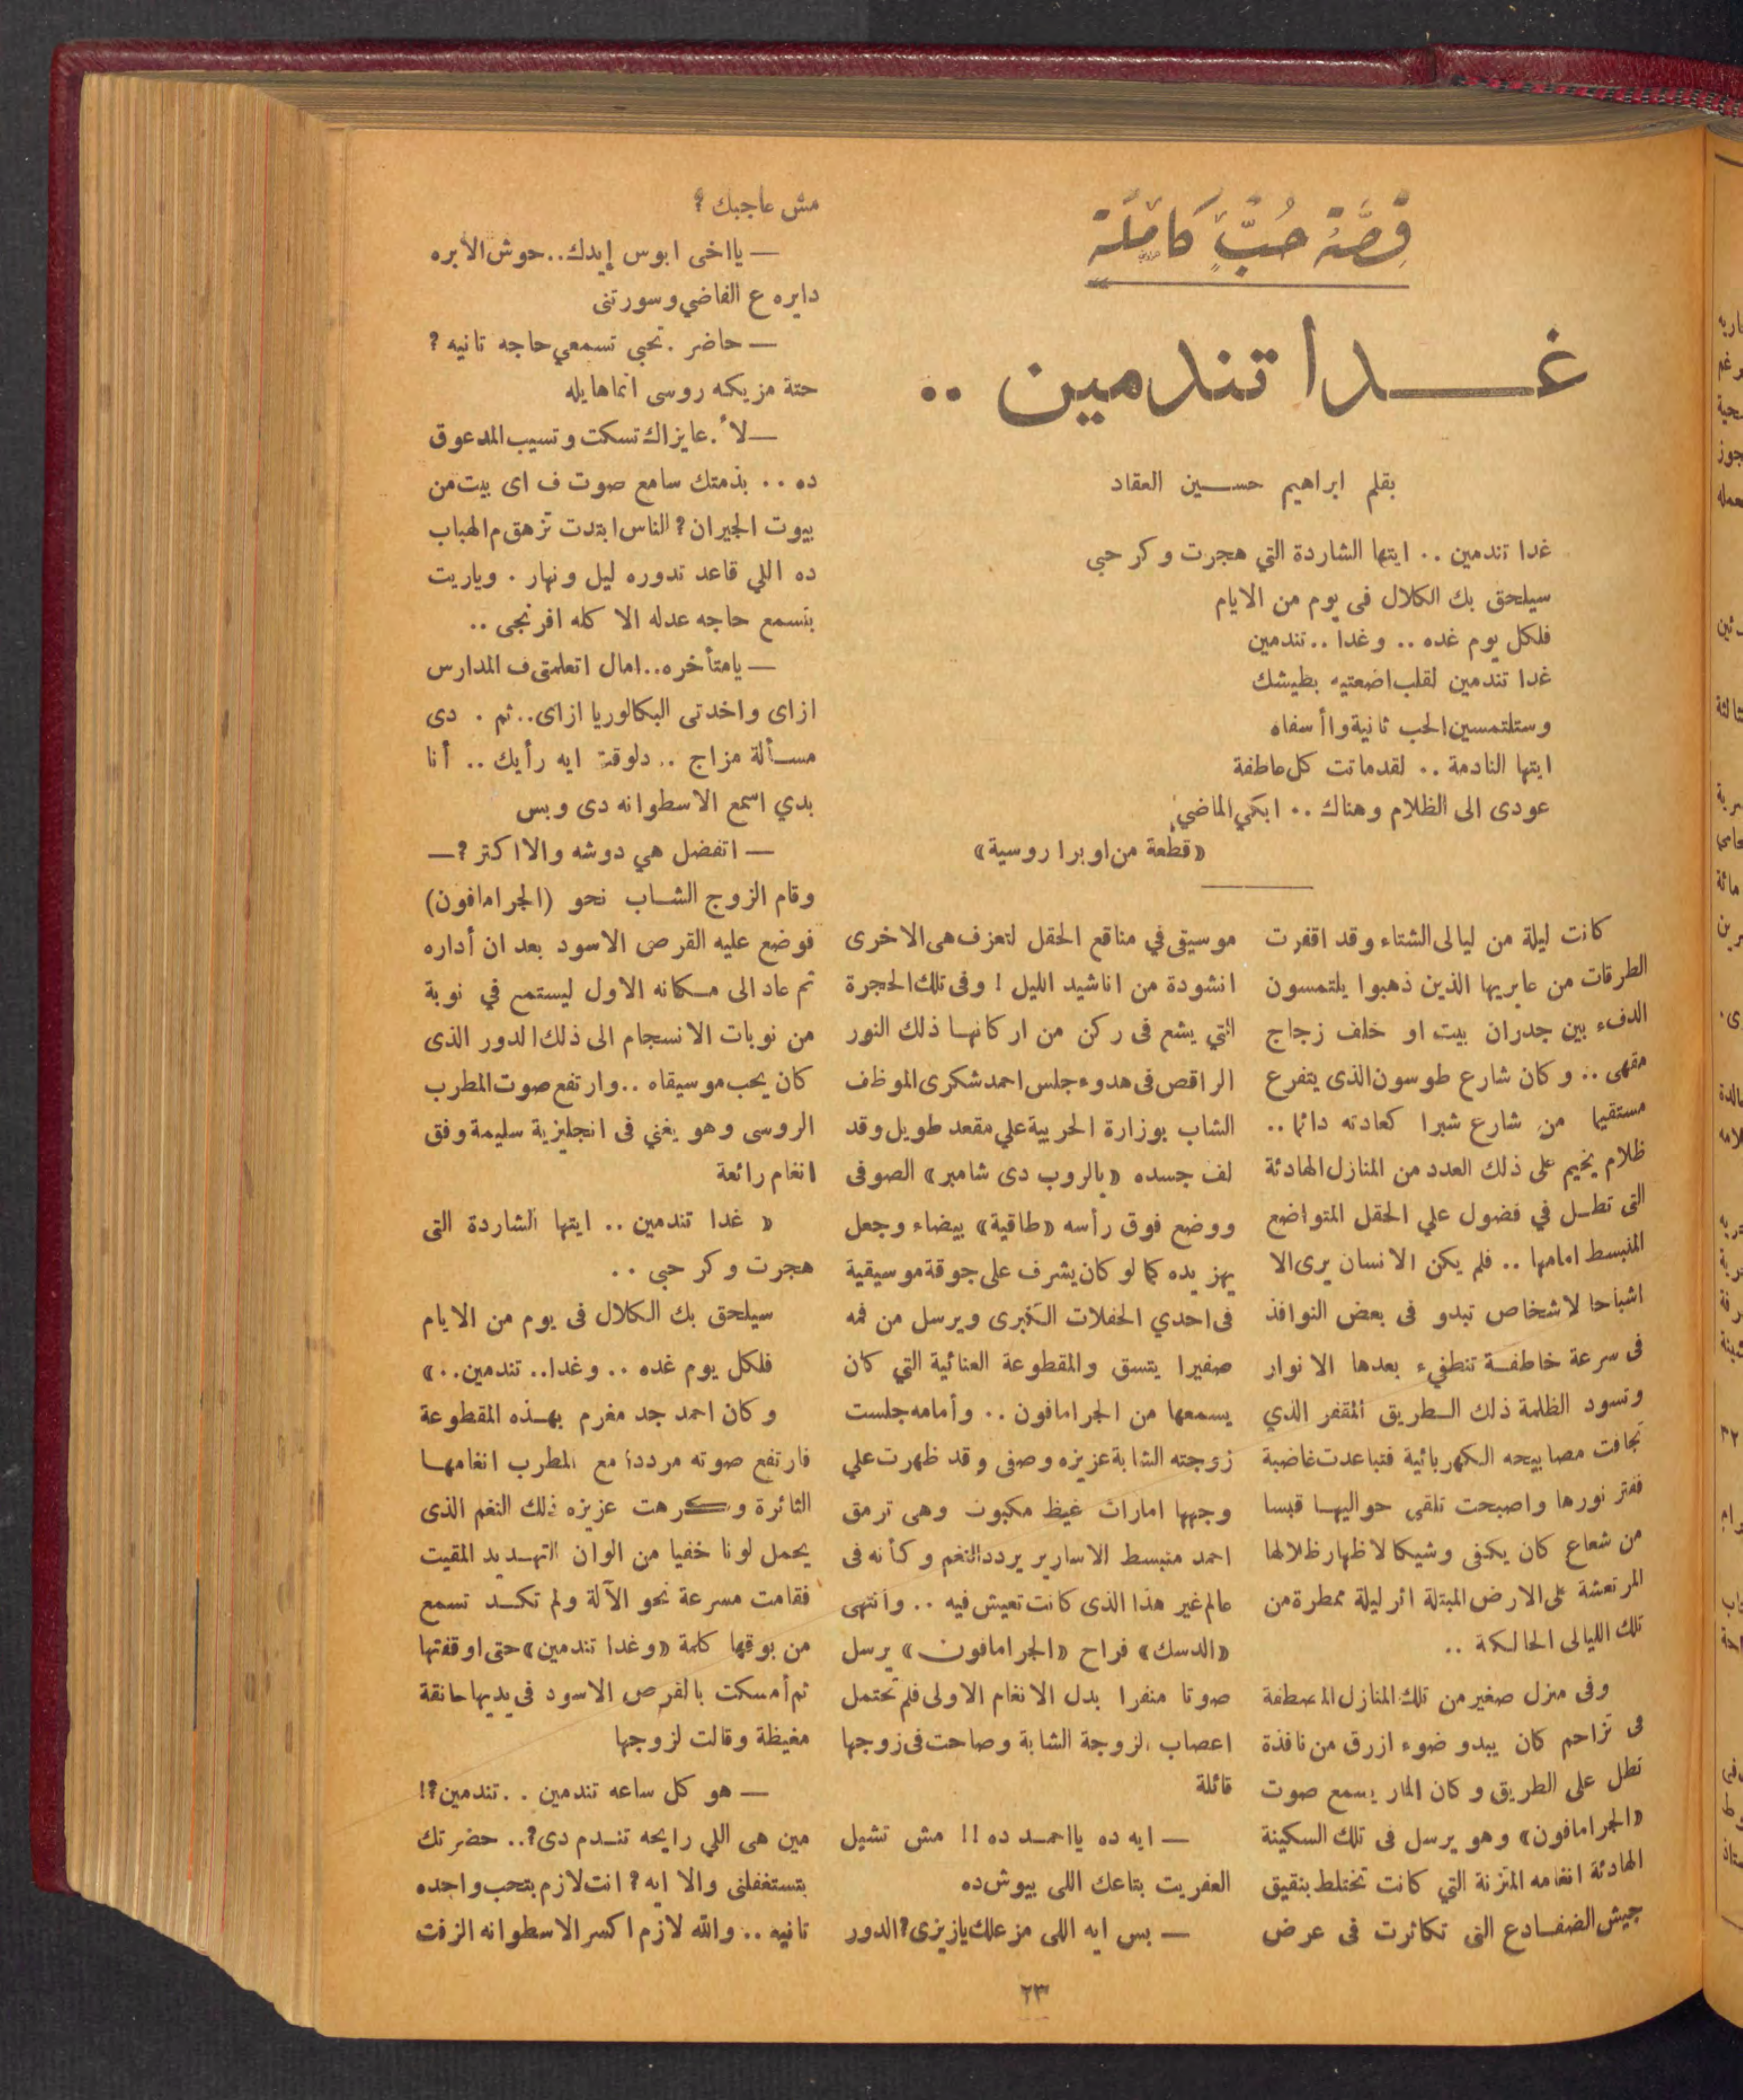 قِصَّة حُبٍّ كَامِلَة
غدا تندمين ..
بقلم ابراهيم حسين العقاد
غدا تندمين .. ايتها الشاردة التي هجرت وكر حبي
سيلحق بك الكلال فى يوم من الايام
فلكل يوم غده .. وغدا .. تندمين
غدا تندمين لقلب اضعتيه بطيشك
وستلتمسين الحب ثانية واأسفاه
ايتها النادمة .. لقد ماتت كل عاطفة
عودى الى الظلام وهناك .. ابكي الماضي
«قطعة من اوبرا روسية»
كانت ليلة من ليالى الشتاء وقد اقفرت
الطرقات من عابريها الذين ذهبوا يلتمسون
الدفء بين جدران بيت او خلف زجاج
مقهى .. وكان شارع طوسون الذى يتفرع
مستقيما من شارع شبرا كعادته دائما ..
ظلام يخيم على ذلك العدد من المنازل الهادئة
التى تطل في فضول علي الحقل المتواضع
المنبسط امامها .. فلم يكن الانسان يرى الا
اشباحا لاشخاص تبدو فى بعض النوافذ
فى سرعة خاطفة تنطفيء بعدها الانوار
وتسود الظلمة ذلك الطريق المقفر الذي
تجافت مصابيحه الكهربائية فتباعدت غاضبة
ففتر نورها واصبحت تلقى حواليها قبسا
من شعاع كان يكفى وشيكا لاظهار ظلالها
المرتعشة على الارض المبتلة اثر ليلة ممطرة من
تلك الليالى الحالكة ..
وفى منزل صغير من تلك المنازل المصطفة
فى تزاحم كان يبدو ضوء ازرق من نافذة
تطل على الطريق وكان المار يسمع صوت
«الجرامافون» وهو يرسل فى تلك السكينة
الهادئة انغامه المتزنة التي كانت تختلط بنقيق
جيش الضفادع التى تكاثرت فى عرض
موسيقى في مناقع الحقل لتعزف هى الاخرى
انشودة من اناشيد الليل ! وفى تلك الحجرة
التي يشع فى ركن من اركانها ذلك النور
الراقص فى هدوء جلس احمد شكرى الموظف
الشاب بوزارة الحربية علي مقعد طويل وقد
لف جسده «بالروب دى شامبر» الصوفى
ووضع فوق رأسه «طاقية» بيضاء وجعل
يهز يده كما لو كان يشرف على جوقة موسيقية
فى احدي الحفلات الكبرى ويرسل من فمه
صفيرا يتسق والمقطوعة الغنائية التي كان
يسمعها من الجرامافون .. وأمامه جلست
زوجته الشابة عزيزه وصفى وقد ظهرت علي
وجهها امارات غيظ مكبوت وهى ترمق
احمد منبسط الاسارير يردد النغم وكأنه فى
عالم غير هذا الذى كانت تعيش فيه .. وانتهى
«الدسك» فراح «الجرامافون» يرسل
صوتا منفرا بدل الانغام الاولى فلم تحتمل
اعصاب الزوجة الشابة وصاحت فى زوجها
قائلة
— ايه ده يااحمد ده !! مش تشيل
العفريت بتاعك اللى بيوش ده
— بس ايه اللى مزعلك يازيزى؟ الدور
مش عاجبك ؟
— يااخى ابوس إيدك.. حوش الأبره
دايره ع الفاضي وسورتنى
— حاضر . تحبي تسمعي حاجه تانيه ؟
حتة مزيكه روسى انما هايله
— لأ . عايزاك تسكت وتسيب المدعوق
ده .. بذمتك سامع صوت ف اى بيت من
بيوت الجيران؟ الناس ابتدت تزهق م الهباب
ده اللي قاعد تدوره ليل ونهار . وياريت
بنسمع حاجه عدله الا كله افرنجى ..
— يامتأخره.. امال اتعلمتى ف المدارس
ازاى واخدتى البكالوريا ازاى.. ثم . دى
مسألة مزاج .. دلوقت ايه رأيك .. أنا
بدي اسمع الاسطوانه دى وبس
— اتفضل هي دوشه والا اكتر ؟ —
وقام الزوج الشاب نحو (الجرامافون)
فوضع عليه القرص الاسود بعد ان أداره
ثم عاد الى مكانه الاول ليستمع في نوبة
من نوبات الانسجام الى ذلك الدور الذى
كان يحب موسيقاه .. وارتفع صوت المطرب
الروسى وهو يغني فى انجليزية سليمة وفق
انغام رائعة
« غدا تندمين .. ايتها الشاردة التى
هجرت وكر حبي ..
سيلحق بك الكلال فى يوم من الايام
فلكل يوم غده .. وغدا.. تندمين..»
وكان احمد جد مغرم بهذه المقطوعة
فارتفع صوته مرددا مع المطرب انغامها
الثائرة وكرهت عزيزه ذلك النغم الذى
يحمل لونا خفيا من الوان التهديد المقيت
فقامت مسرعة نحو الآلة ولم تكد تسمع
من بوقها كلمة «وغدا تندمين» حتى اوقفتها
ثم أمسكت بالقرص الاسود فى يديها حانقة
مغيظة وقالت لزوجها
— هو كل ساعه تندمين .. تندمين؟!
مين هى اللي رايحه تندم دى؟.. حضرتك
بتستغفلنى والا ايه ؟ انت لازم بتحب واحده
تانيه .. والله لازم اكسر الاسطوانه الزفت
٢٣